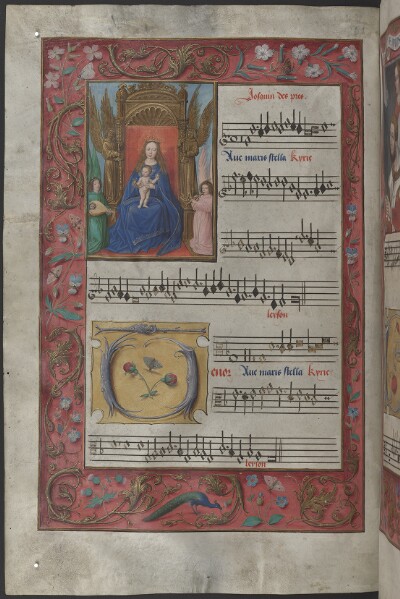 Josquin des pres.
Aue maris stella Kyrie
leyson
enor Aue maris stella Kyrie
leyson